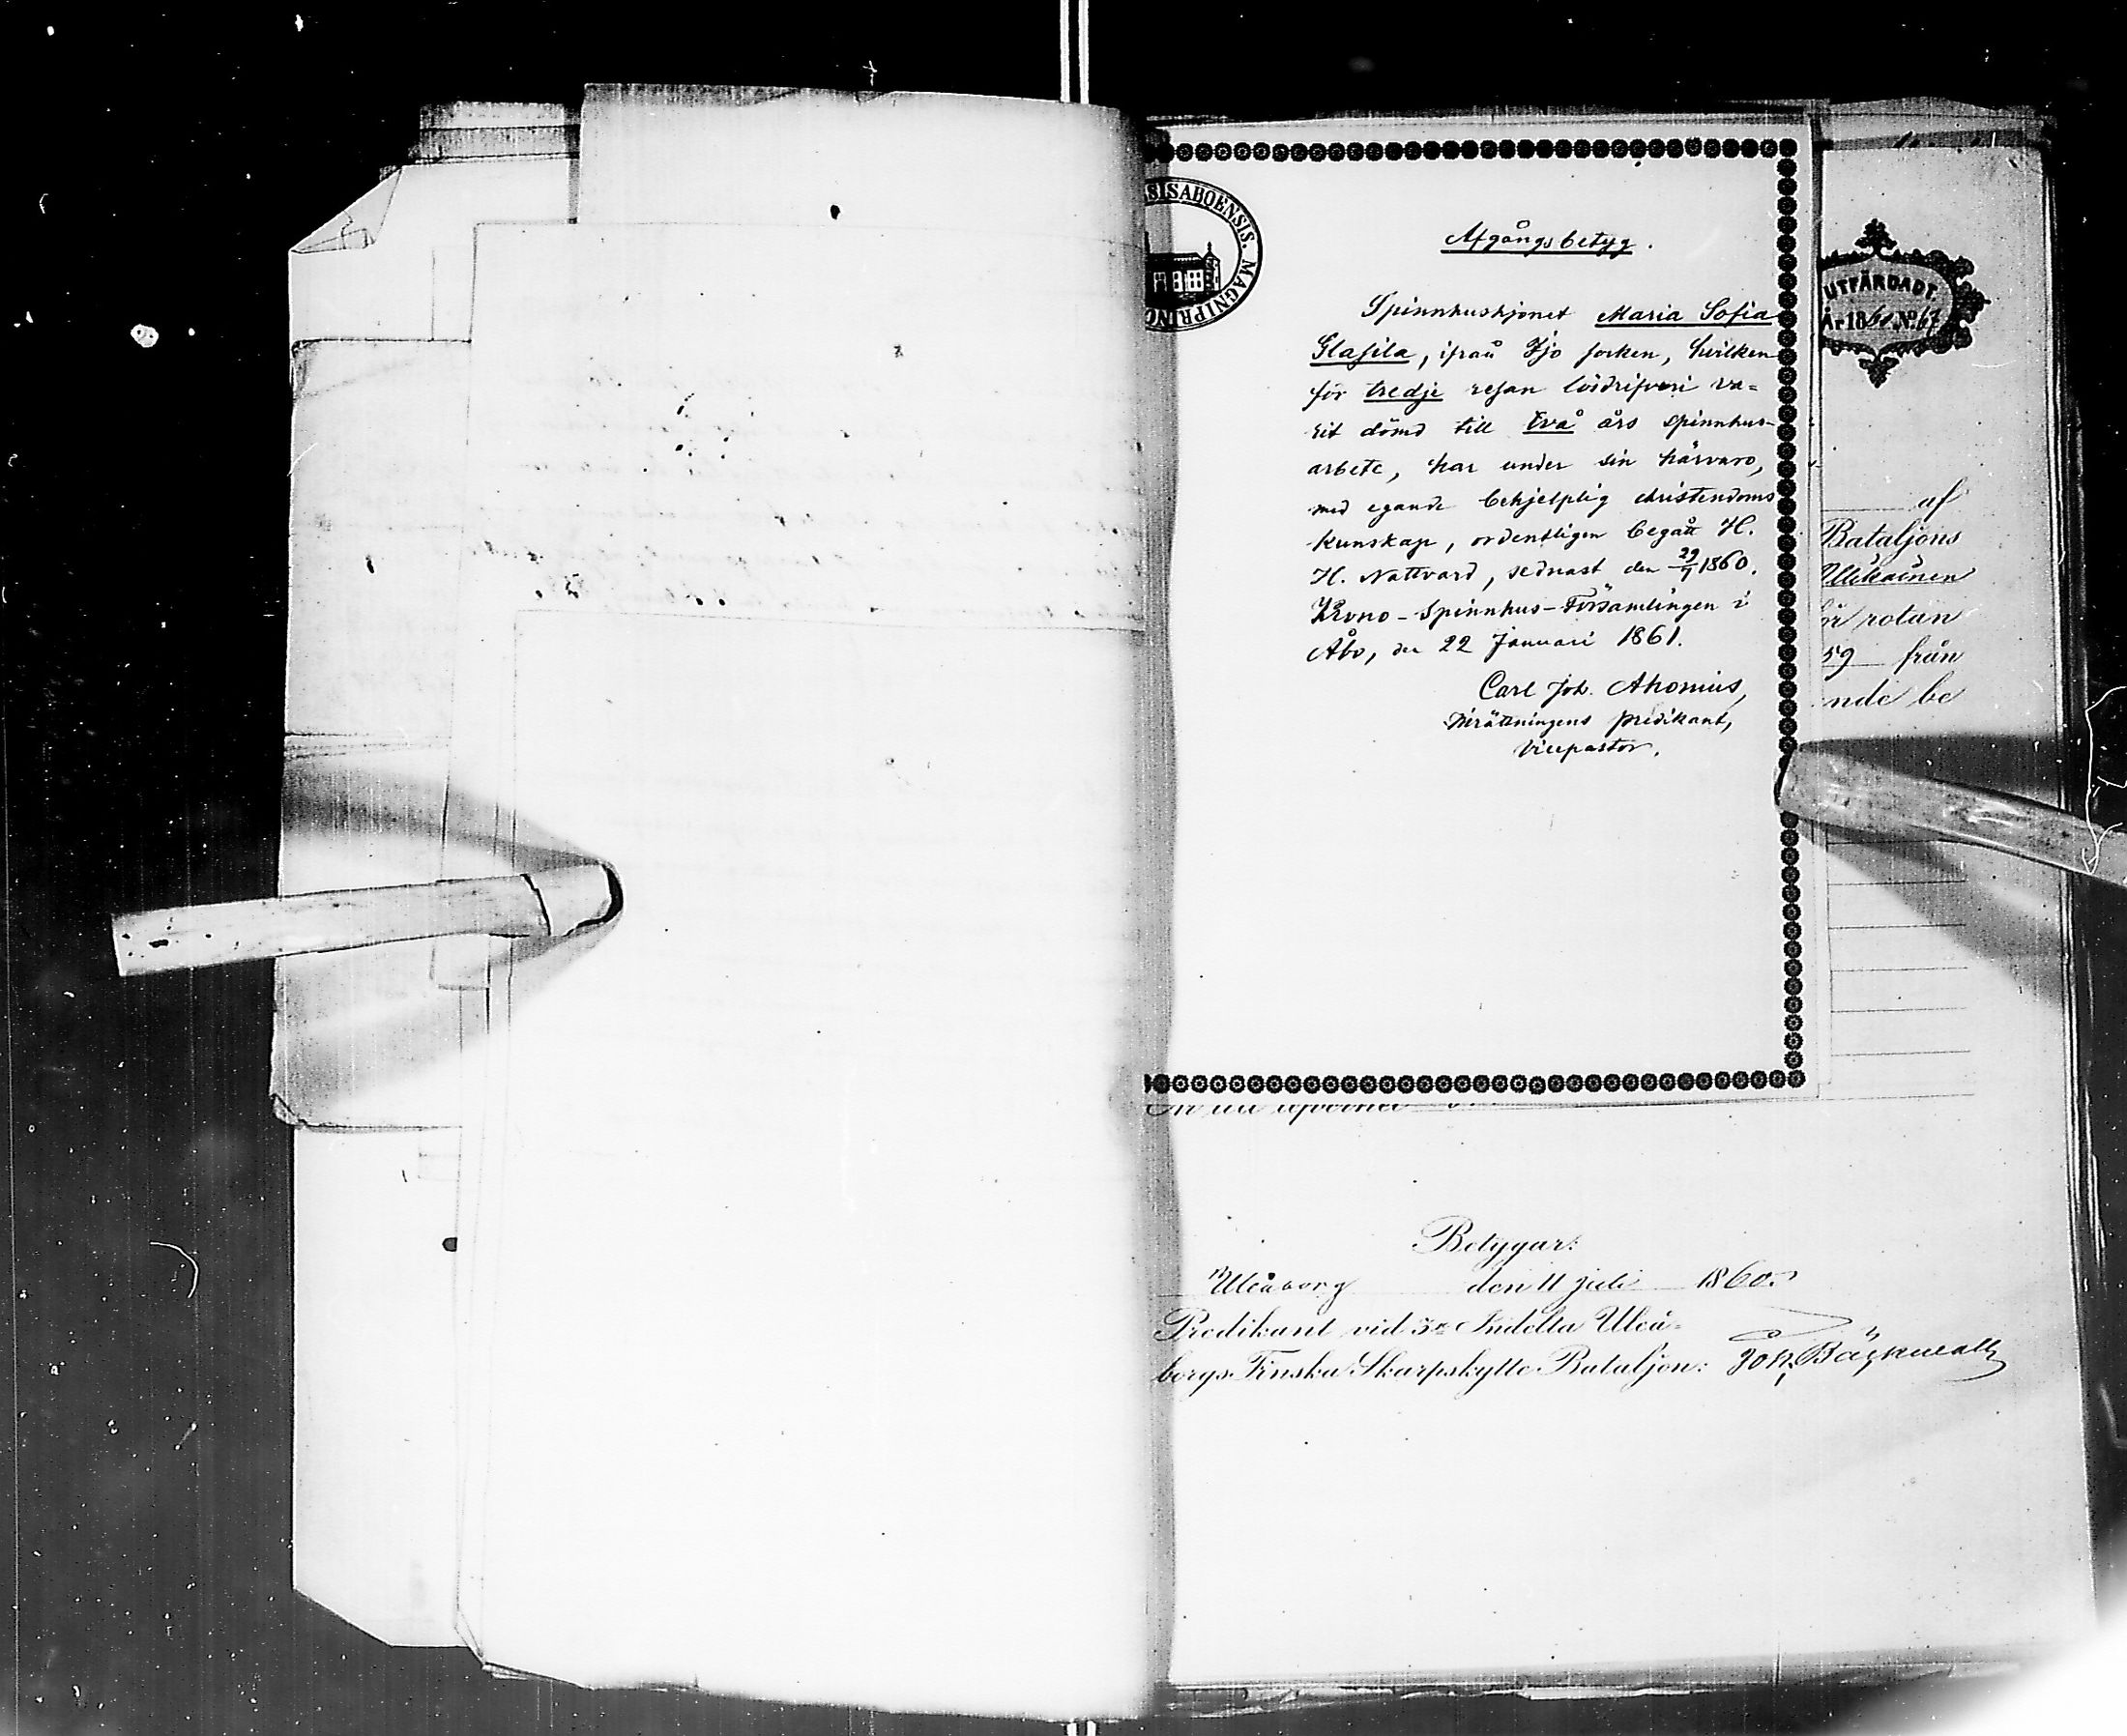 SISABOENSIS. MAGNIPRINC
Afgångsbetyg.
Spinnhushjonet Maria Sofia
Glafila, ifrån Ijo socken, hvilken
för tredje resan lösdrifveri va-
rit dömd till två års spinnhus-
arbete, har under sin härvaro,
med egande behjelplig christendoms
kunskap, ordentligen begått H.
H. Nattvard, sednast den 29/7 1860.
Krono-Spinnhus-Församlingen i
Åbo, den 22 Januari 1861.
Carl Joh. Ahonius,
Inrättningens predikant,
Vicepastor.
UTFÄRDADT.
År 1860 No. 67
af
Bataljons
för rotan
59 från
ande be
Betygar:
Uleåborg den 11 Juli 1860.
Predikant vid 3e Indelta Uleå-
borgs Finska Skarpskytte Bataljon: Joh. Bäckwall